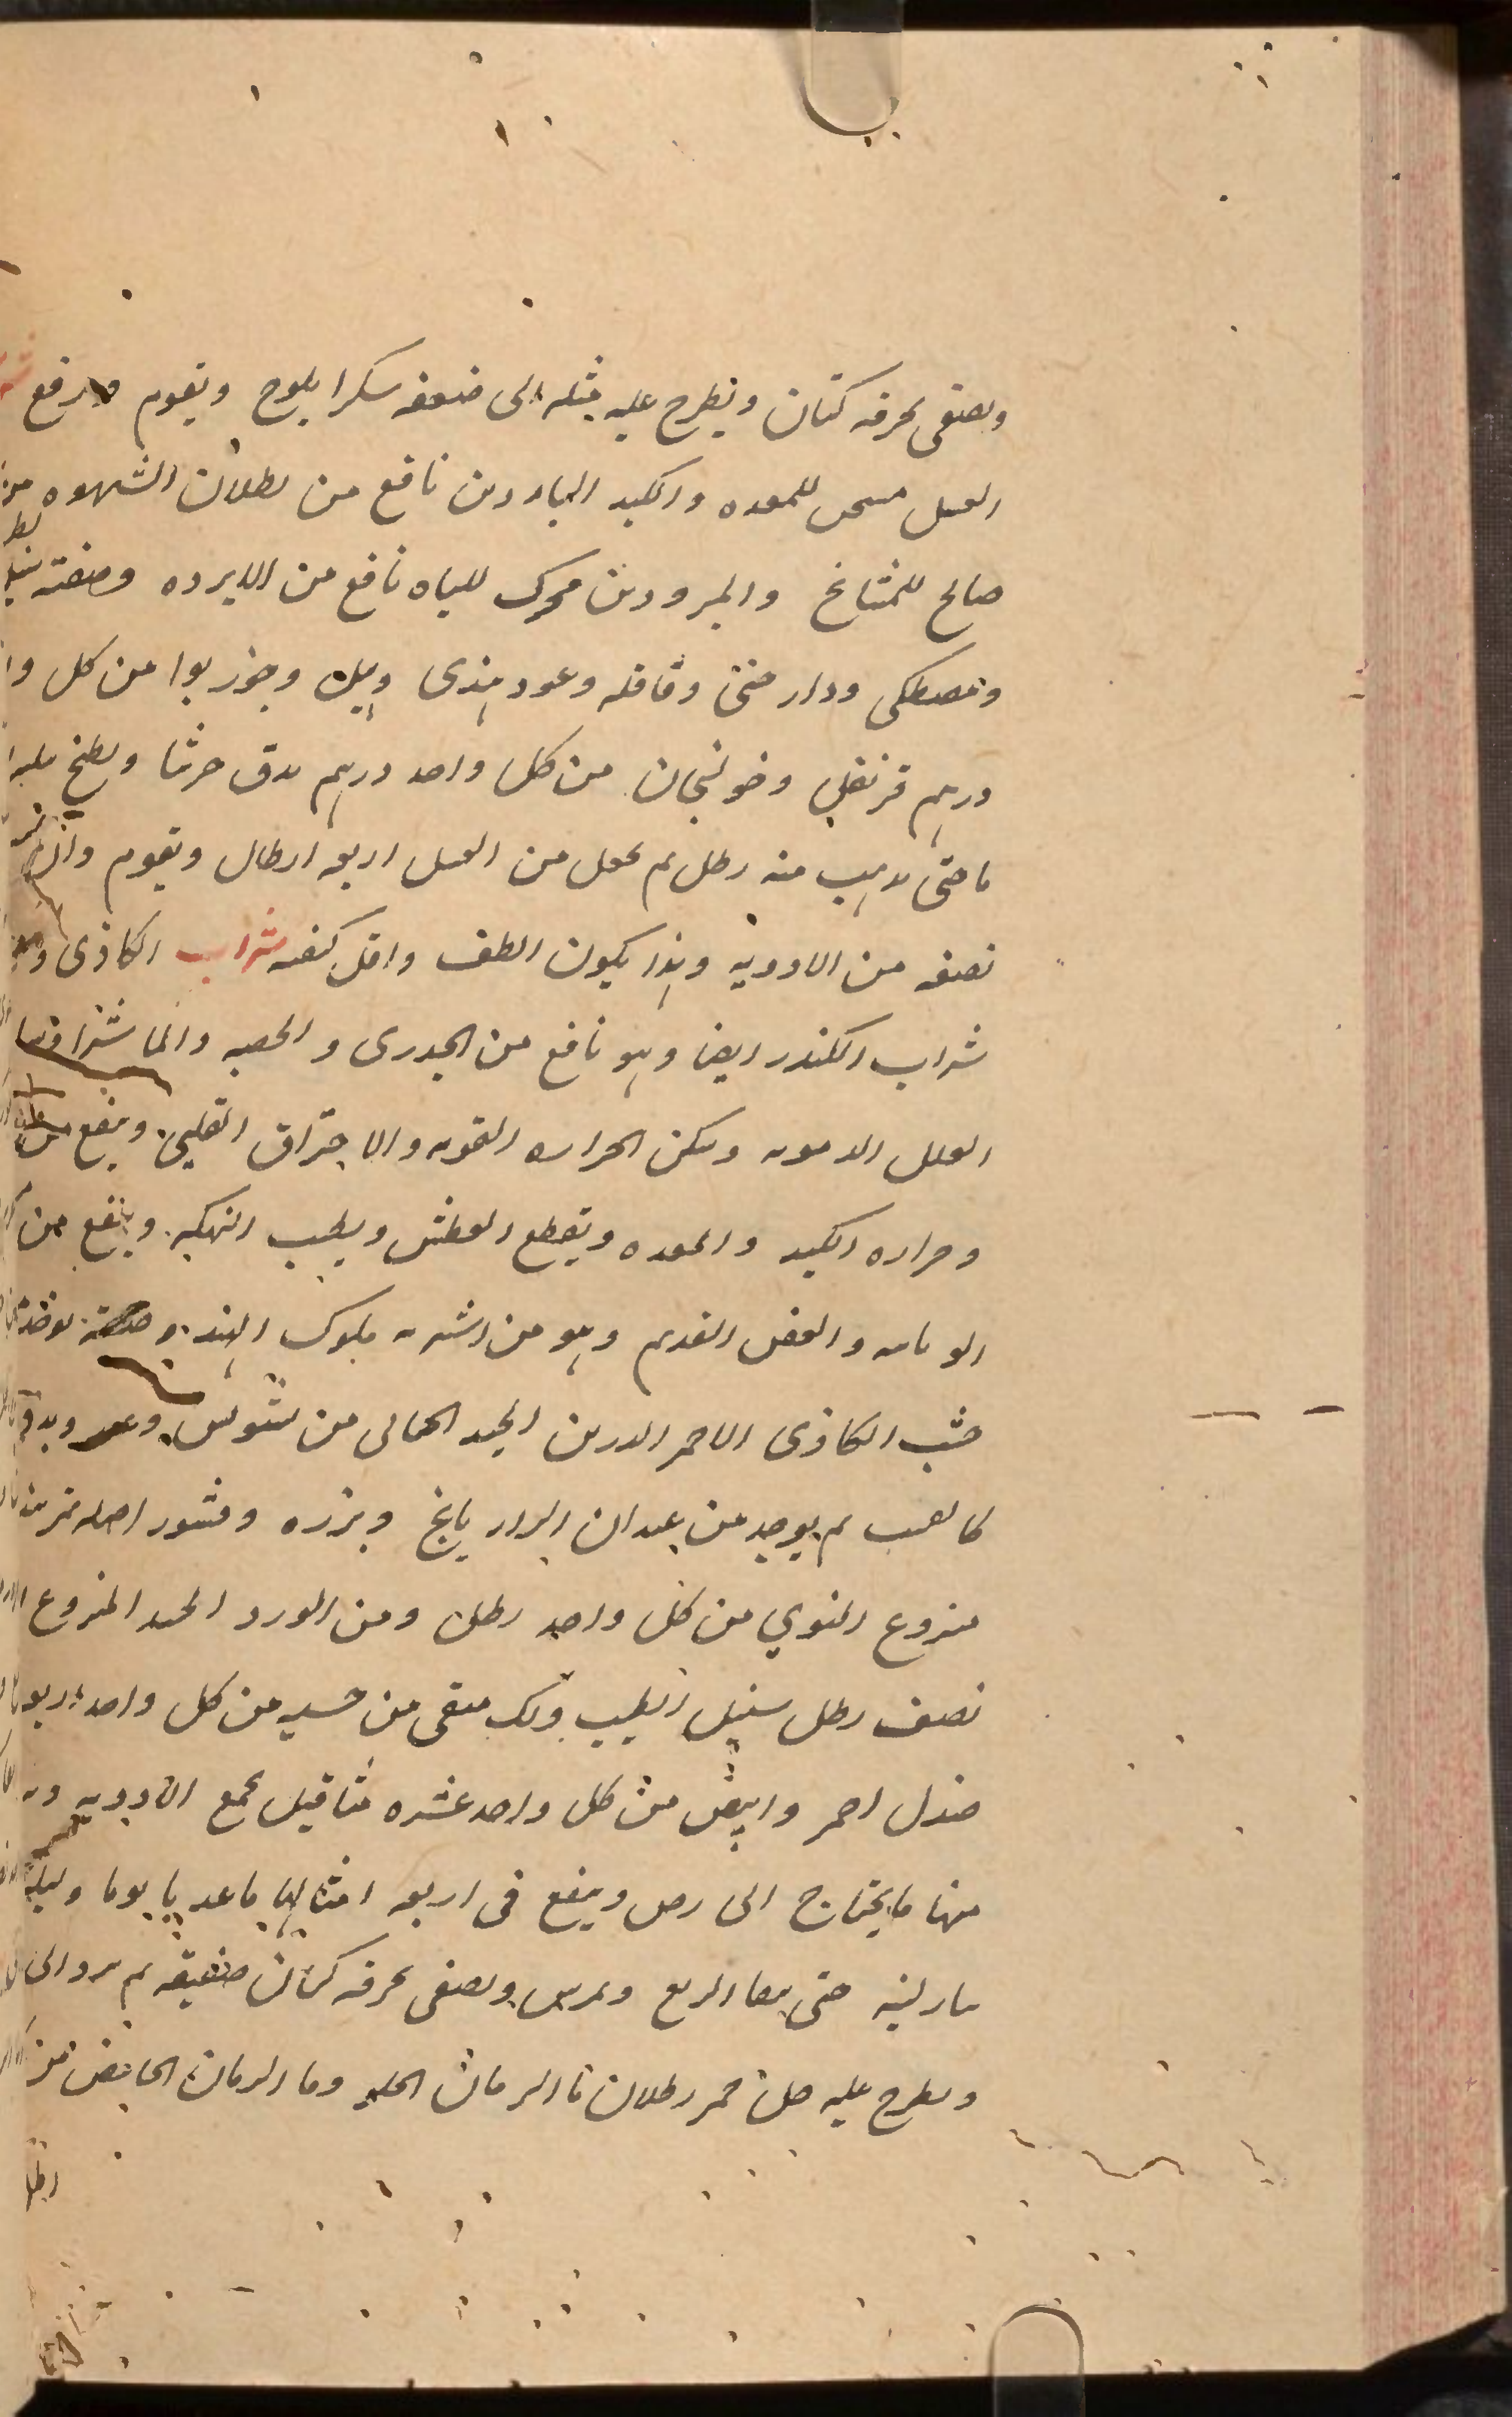 ويصفى بخرقه كتان ويطرح عليه مثله الى ضعفه سكرا يلوح ويقوم ويرفع
العسل مسخن للمعده والكبد الباردين نافع من بطلان الشهوه
صالح للمشايخ والمبرودين محرك للباه نافع من الابرده وصفته
ومصطكى ودار صينى وقاقله وعود هندى وهيل وجوز بوا من كل
درهم قرنفل وخولنجان من كل واحد درهم يدق جرشا ويطبخ
ما حتى يذهب منه رطل ثم يجعل من العسل اربعه ارطال ويقوم
نصفه من الادويه وهذا يكون الطف واقل كيفيه شراب الكاذى
شراب الكندر ايضا وهو نافع من الجدرى والحصبه والماشرا
العلل الدمويه ويسكن الحراره القويه والاحتراق القلبى وينفع من
وحراره الكبد والمعده ويقطع العطش ويطيب النكهه وينفع من
الوبائيه والعفن القديم وهو من اشربه ملوك الهند وصفته يوخذ
خشب الكاذى الاحمر الجيد من وغيره ويدق
ثم يوخذ من عيدان الرازيانج وبزره وقشور اصله
منزوع النوي من كل واحد رطل ومن الورد الجيد المنزوع
نصف رطل سنبل الطيب ولك منقى من خشبه من كل واحد اربعه
صندل احمر وابيض من كل واحد عشره مثاقيل يجمع الادويه
منها ما يحتاج الى رض وينقع فى اربعه امثالها ما عذبا يوما وليله
بنار لينه حتى الربع ويمرس ويصفى بخرقه كتان صفيقه ثم يرد الى
ويطرح عليه خل خمر رطلان ما الرمان الحلو وما الرمان الحامض من
رطل